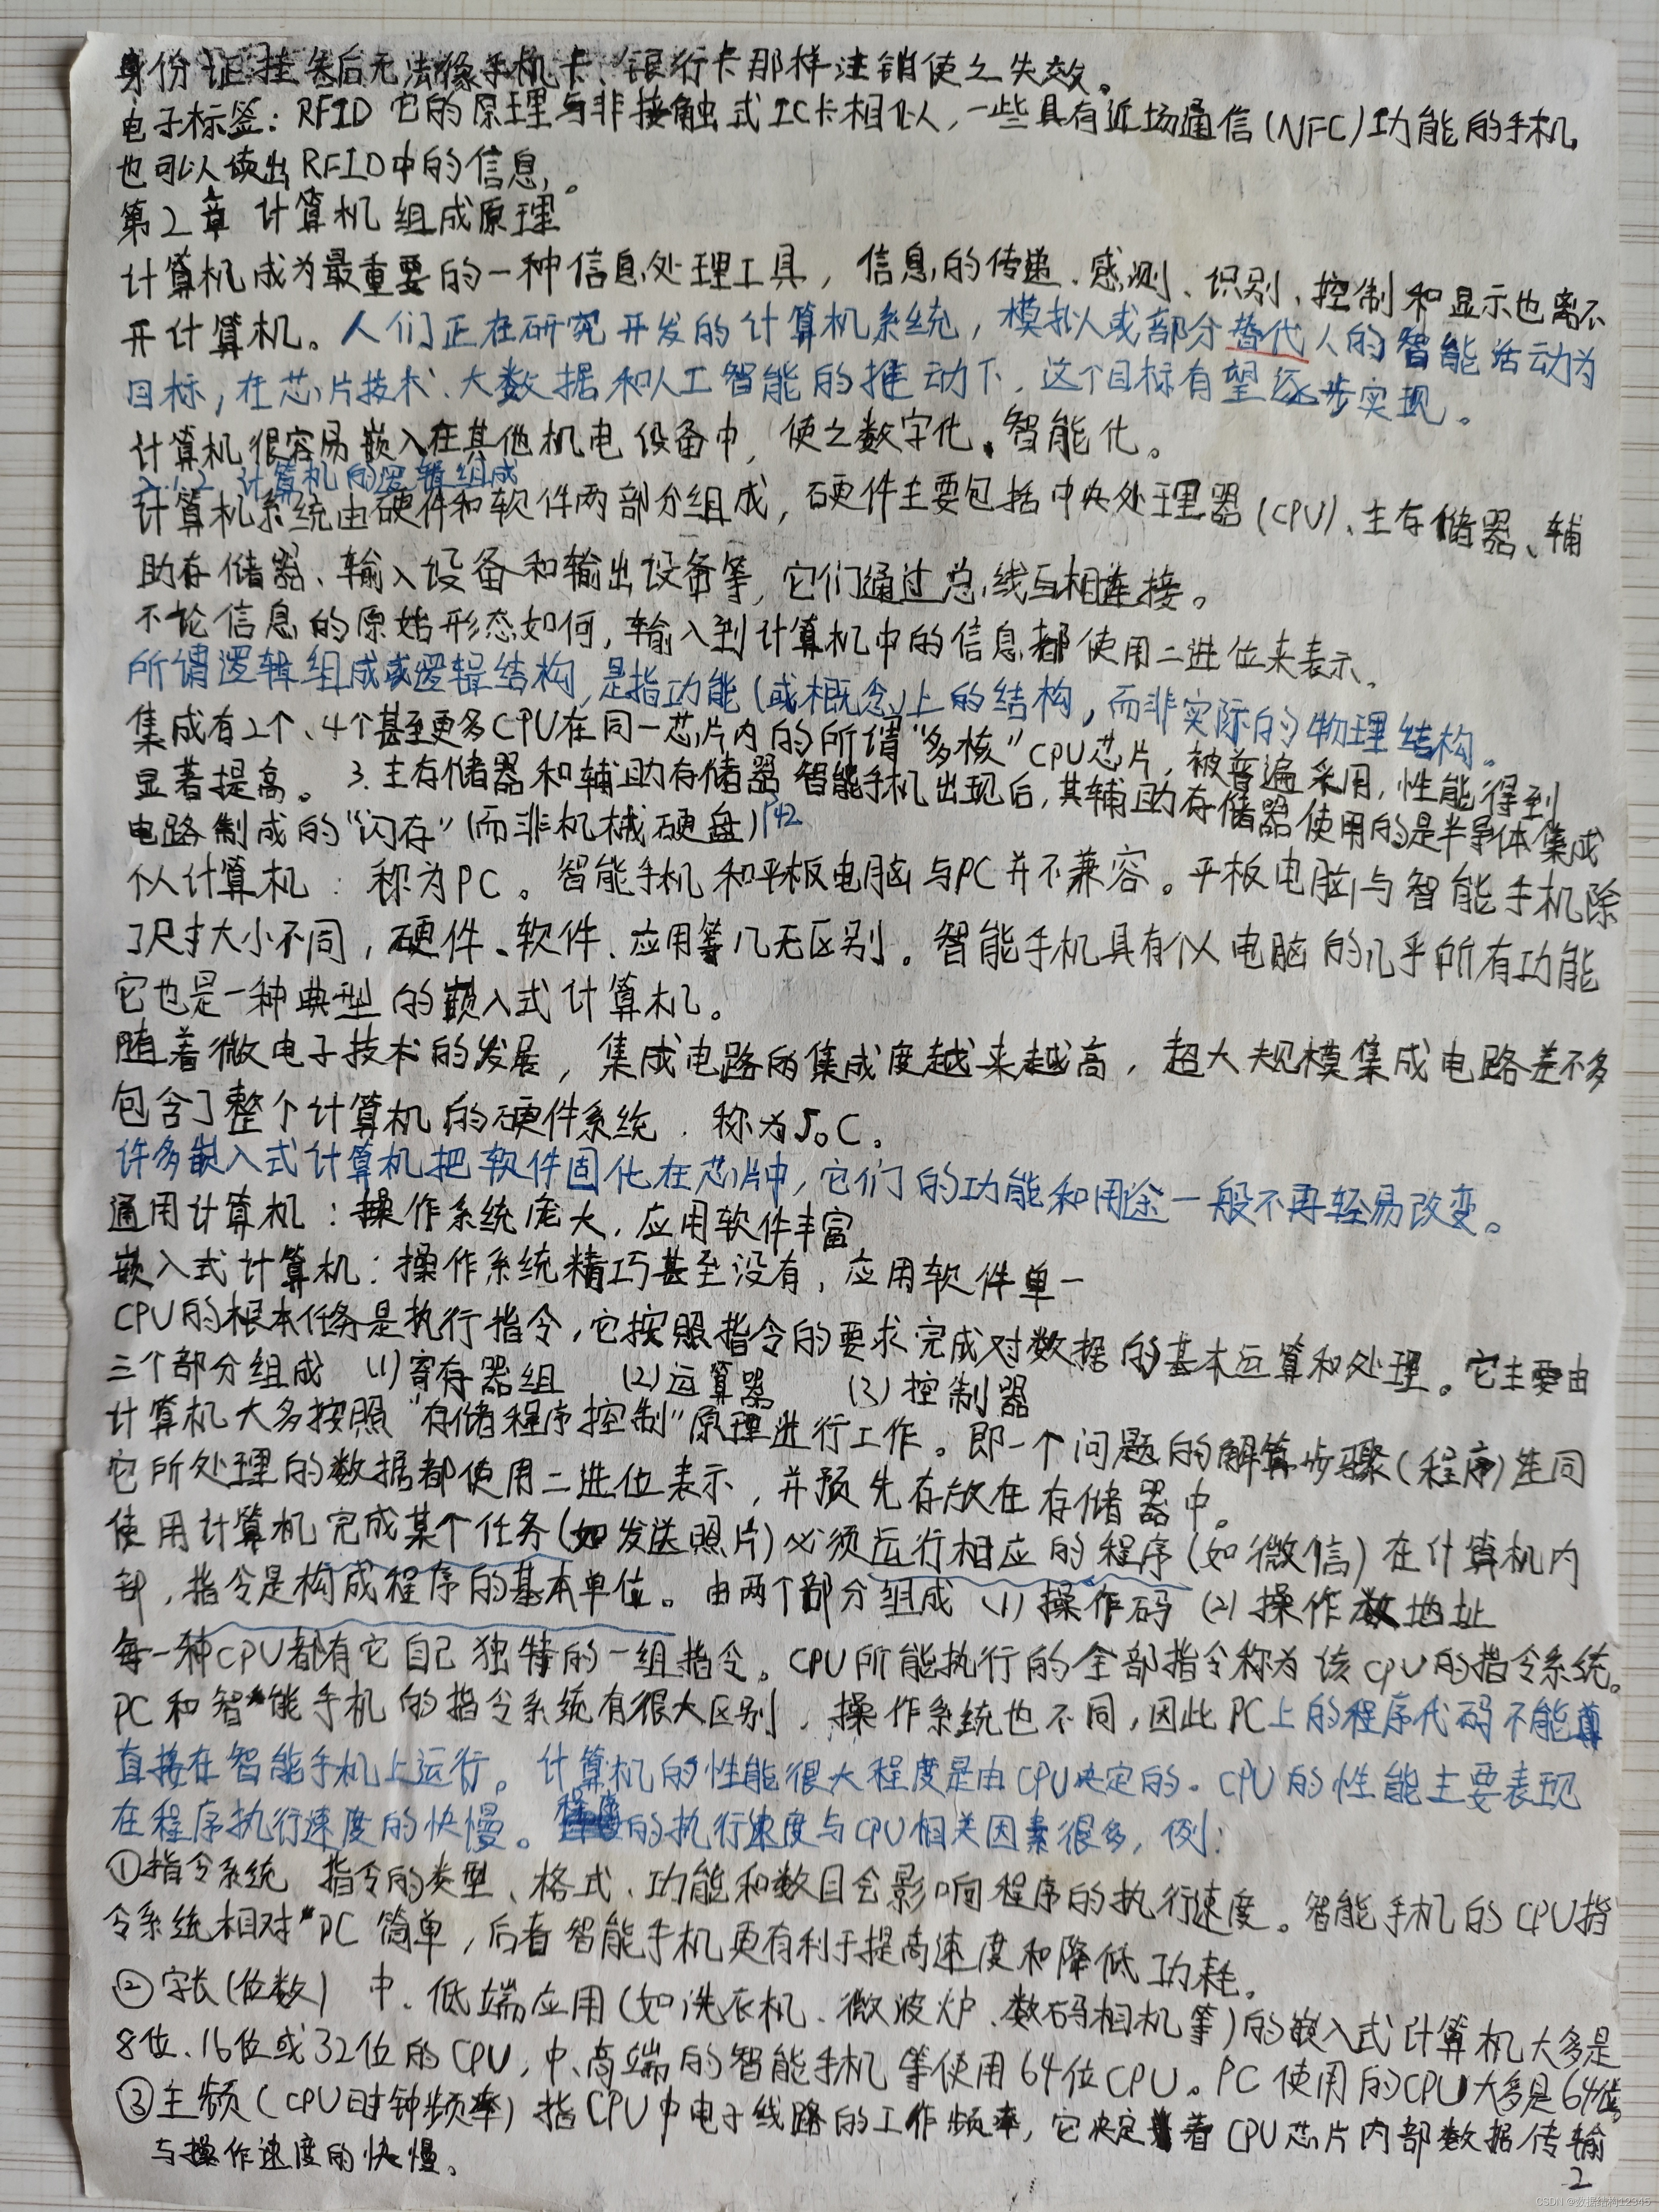 身份证挂失后无法像手机卡、银行卡那样注销使之失效。
电子标签：RFID 它的原理与非接触式IC卡相似，一些具有近场通信(NFC)功能的手机
也可以读出RFID中的信息。
第2章 计算机组成原理
计算机成为最重要的一种信息处理工具，信息的传递、感测、识别、控制和显示也离不
开计算机。人们正在研究开发的计算机系统，模拟人或部分替代人的智能活动为
目标，在芯片技术、大数据和人工智能的推动下，这个目标有望逐步实现。
计算机很容易嵌入在其他机电设备中，使之数字化、智能化。
2.1.2 计算机的逻辑组成
计算机系统由硬件和软件两部分组成，硬件主要包括中央处理器(CPU)、主存储器、辅
助存储器、输入设备和输出设备等，它们通过总线互相连接。
不论信息的原始形态如何，输入到计算机中的信息都使用二进位来表示。
所谓逻辑组成或逻辑结构，是指功能(或概念)上的结构，而非实际的物理结构。
集成有2个、4个甚至更多CPU在同一芯片内的所谓“多核”CPU芯片，被普遍采用，性能得到
显著提高。 3.主存储器和辅助存储器 智能手机出现后，其辅助存储器使用的是半导体集成
电路制成的“闪存”(而非机械硬盘)P42
个人计算机：称为PC。智能手机和平板电脑与PC并不兼容。平板电脑与智能手机除
了尺寸大小不同，硬件、软件、应用等几无区别。智能手机具有个人电脑的几乎所有功能
它也是一种典型的嵌入式计算机。
随着微电子技术的发展，集成电路的集成度越来越高，超大规模集成电路差不多
包含了整个计算机的硬件系统，称为SoC。
许多嵌入式计算机把软件固化在芯片中，它们的功能和用途一般不再轻易改变。
通用计算机：操作系统庞大，应用软件丰富
嵌入式计算机：操作系统精巧甚至没有，应用软件单一
CPU的根本任务是执行指令，它按照指令的要求完成对数据的基本运算和处理。它主要由
三个部分组成 (1)寄存器组 (2)运算器 (3)控制器
计算机大多按照“存储程序控制”原理进行工作。即一个问题的解算步骤(程序)连同
它所处理的数据都使用二进位表示，并预先存放在存储器中。
使用计算机完成某个任务(如发送照片)必须运行相应的程序(如微信)在计算机内
部，指令是构成程序的基本单位。由两个部分组成 (1)操作码 (2)操作数地址
每一种CPU都有它自己独特的一组指令。CPU所能执行的全部指令称为该CPU的指令系统。
PC和智能手机的指令系统有很大区别，操作系统也不同，因此PC上的程序代码不能
直接在智能手机上运行。计算机的性能很大程度是由CPU决定的。CPU的性能主要表现
在程序执行速度的快慢。程序的执行速度与CPU相关因素很多，例：
①指令系统 指令的类型、格式、功能和数目会影响程序的执行速度。智能手机的CPU指
令系统相对PC简单，后者智能手机更有利于提高速度和降低功耗。
②字长(位数) 中、低端应用(如洗衣机、微波炉、数码相机等)的嵌入式计算机大多是
8位、16位或32位的CPU，中、高端的智能手机等使用64位CPU。PC使用的CPU大多是64位。
③主频(CPU时钟频率) 指CPU中电子线路的工作频率，它决定着CPU芯片内部数据传输
与操作速度的快慢。
2
CSDN @数据结构12345